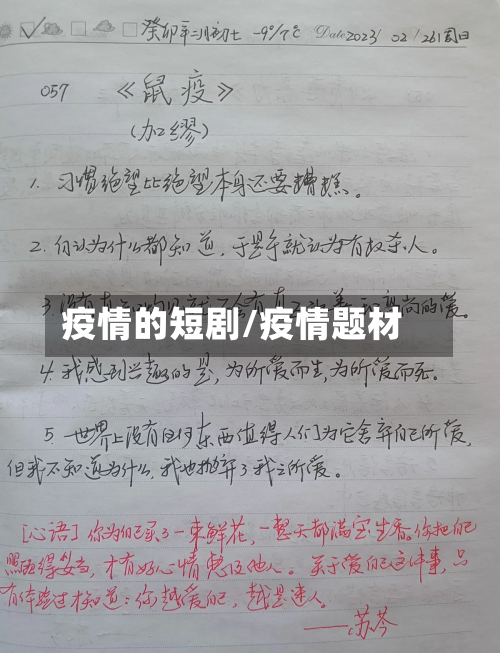 癸卯年二月初七 -9°/7℃ Date 2023/ 02/26/周日
057 《鼠疫》
(加缪)
1. 习惯绝望比绝望本身还要糟糕。
2. 自认为什么都知道,于是乎就认为有权杀人。
疫情的短剧/疫情题材
3. 没有 的爱。
4. 我感到兴趣的是,为所爱而生,为所爱而死。
5. 世界上没有任何东西值得人们为它舍弃自己所爱,
但我不知道为什么,我也抛弃了我之所爱。
[心语] 你为自己买了一束鲜花,一整天都满室生香。你把自己
照顾得妥当,才有好心情惠及他人。关于爱自己这件事,只
有体验过才知道:你越爱自己,越是迷人。
——苏芩